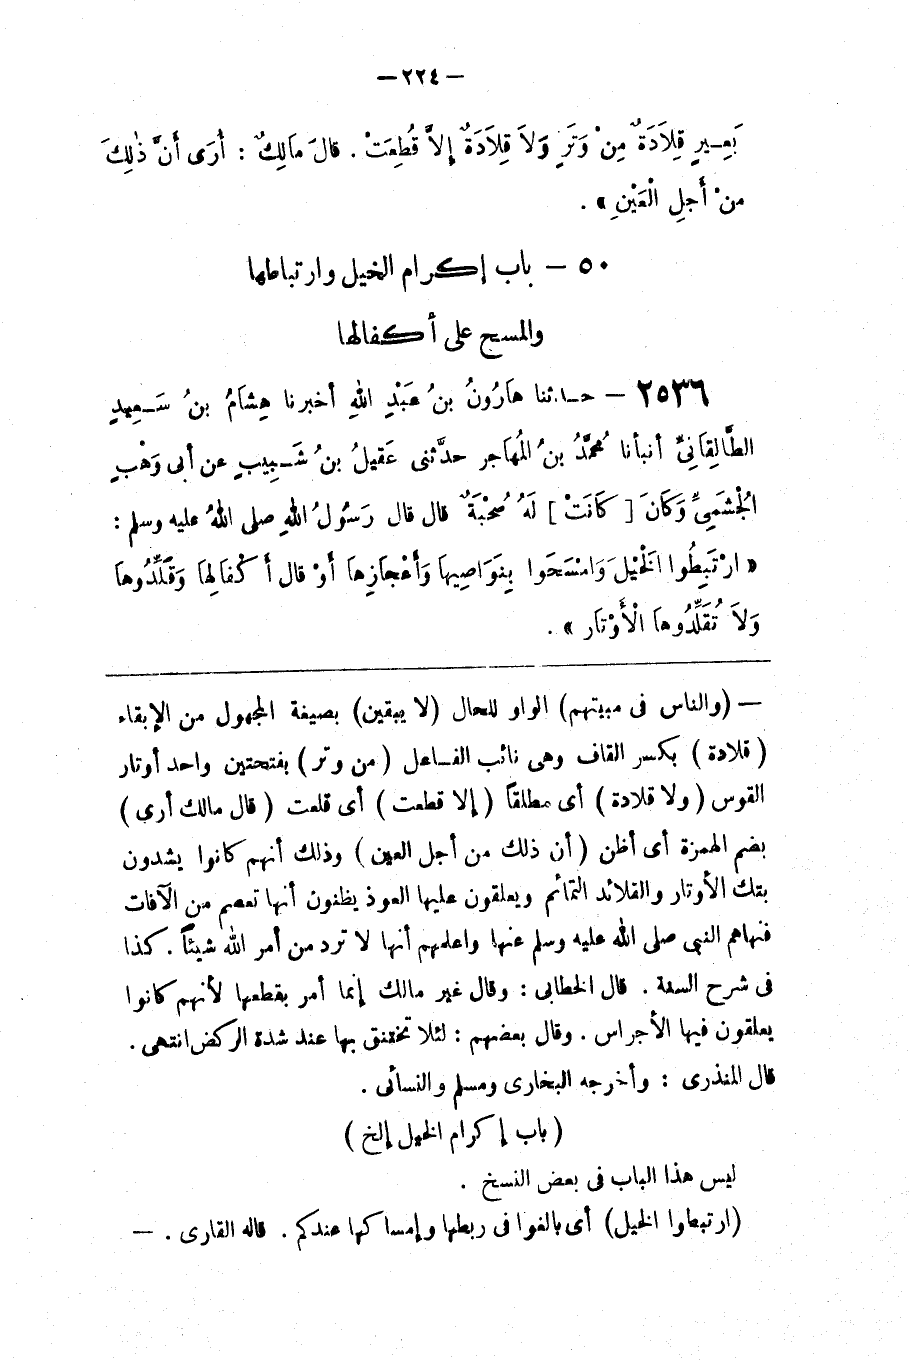 — ٢٢٤ —
بَعِـيرٍ قِلَادَةٌ مِنْ وَتَرٍ وَلَا قِلَادَةٌ إِلَّا قُطِعَتْ . قالَ مَالِكٌ : أُرَى أَنَّ ذٰلِكَ
مِنْ أَجلِ الْعَيْنِ » .
٥٠ — باب إكرام الخيل وارتباطها
والمسح على أكفالها
٢٥٣٦ — حـدثنا هَارُونُ بنُ عَبْدِ اللهِ أخبرنا هِشَامُ بنُ سَـعِيدٍ
الطَّالِقَانِيُّ أنبأنا مُحمَّدُ بنُ المُهَاجرِ حدَّثنى عَقِيلُ بنُ شَـبِيبٍ عن أبى وَهْبٍ
الْجُشَمِيِّ وَكَانَ [ كَانَتْ ] لَهُ صُحْبَةٌ قال قال رَسُولُ اللهِ صلى اللهُ عليه وسلم :
« ارْتَبِطُوا الْخَيْلَ وَامْسَحُوا بِنَوَاصِيهاَ وَأَعْجَازِهاَ أوْ قال أَ كْفَالِهاَ وَقَلِّدُوهاَ
وَلَا تُقَلِّدُوهاَ الْأَوْتَارَ » .
— (والناس فى مبيتهم) الواو للحال (لا يبقين) بصيغة المجهول من الإبقاء
( قلادة ) بكسر القاف وهى نائب الفـاعل ( من وتر ) بفتحتين واحد أوتار
القوس ( ولا قلادة ) أى مطلقاً ( إلا قطعت ) أى قلعت ( قال مالك أرى )
بضم الهمزة أى أظن ( أن ذلك من أجل العين ) وذلك أنهم كانوا يشدون
بتلك الأوتار والقلائد التمائم ويعلقون عليها العوذ يظنون أنها تعصم من الآفات
فنهاهم النبى صلى الله عليه وسلم عنها واعلمهم أنها لا ترد من أمر الله شيئاً . كذا
فى شرح السنة . قال الخطابى : وقال غير مالك إنما أمر بقطعها لأنهم كانوا
يعلقون فيها الأجراس . وقال بعضهم : لئلا تختنق بها عند شدة الركض انتهى .
قال المنذرى : وأخرجه البخارى ومسلم والنسائى .
( باب إ كرام الخيل إلخ )
ليس هذا الباب فى بعض النسخ .
(ارتبطوا الخيل) أى بالغوا فى ربطها وإمساكها عندكم . قاله القارى . —